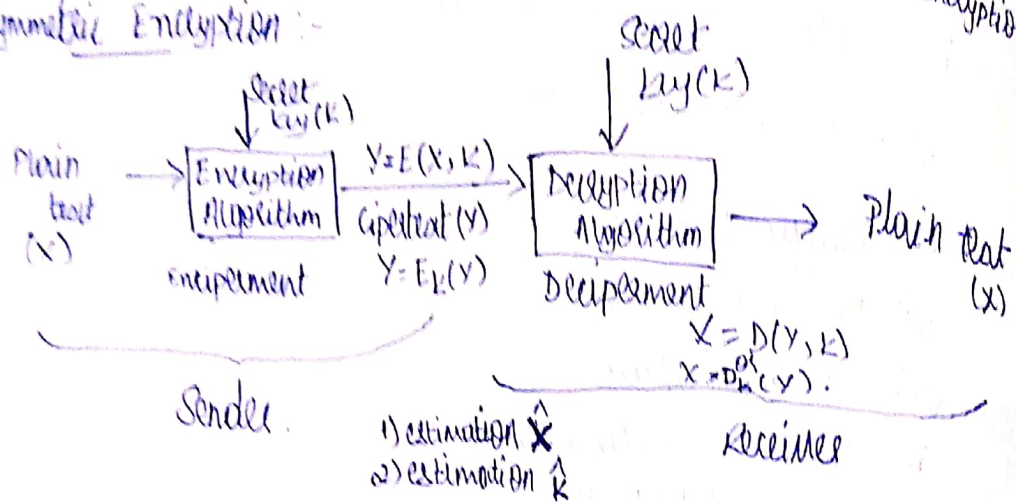 ymmetric Encryption :-
yptio
Secret
key(k)
Secret
key(k)
Plain
text
(X)
Encryption
Algorithm
Enciperment
Y=E(X,K)
Cipertext (Y)
Y=Ek(Y)
Decryption
Algorithm
Deciperment
Plain text
(X)
X = D(Y, K)
or
X = Dk(Y).
Sender.
Receiver
1) estimation X̂
2) estimation k̂